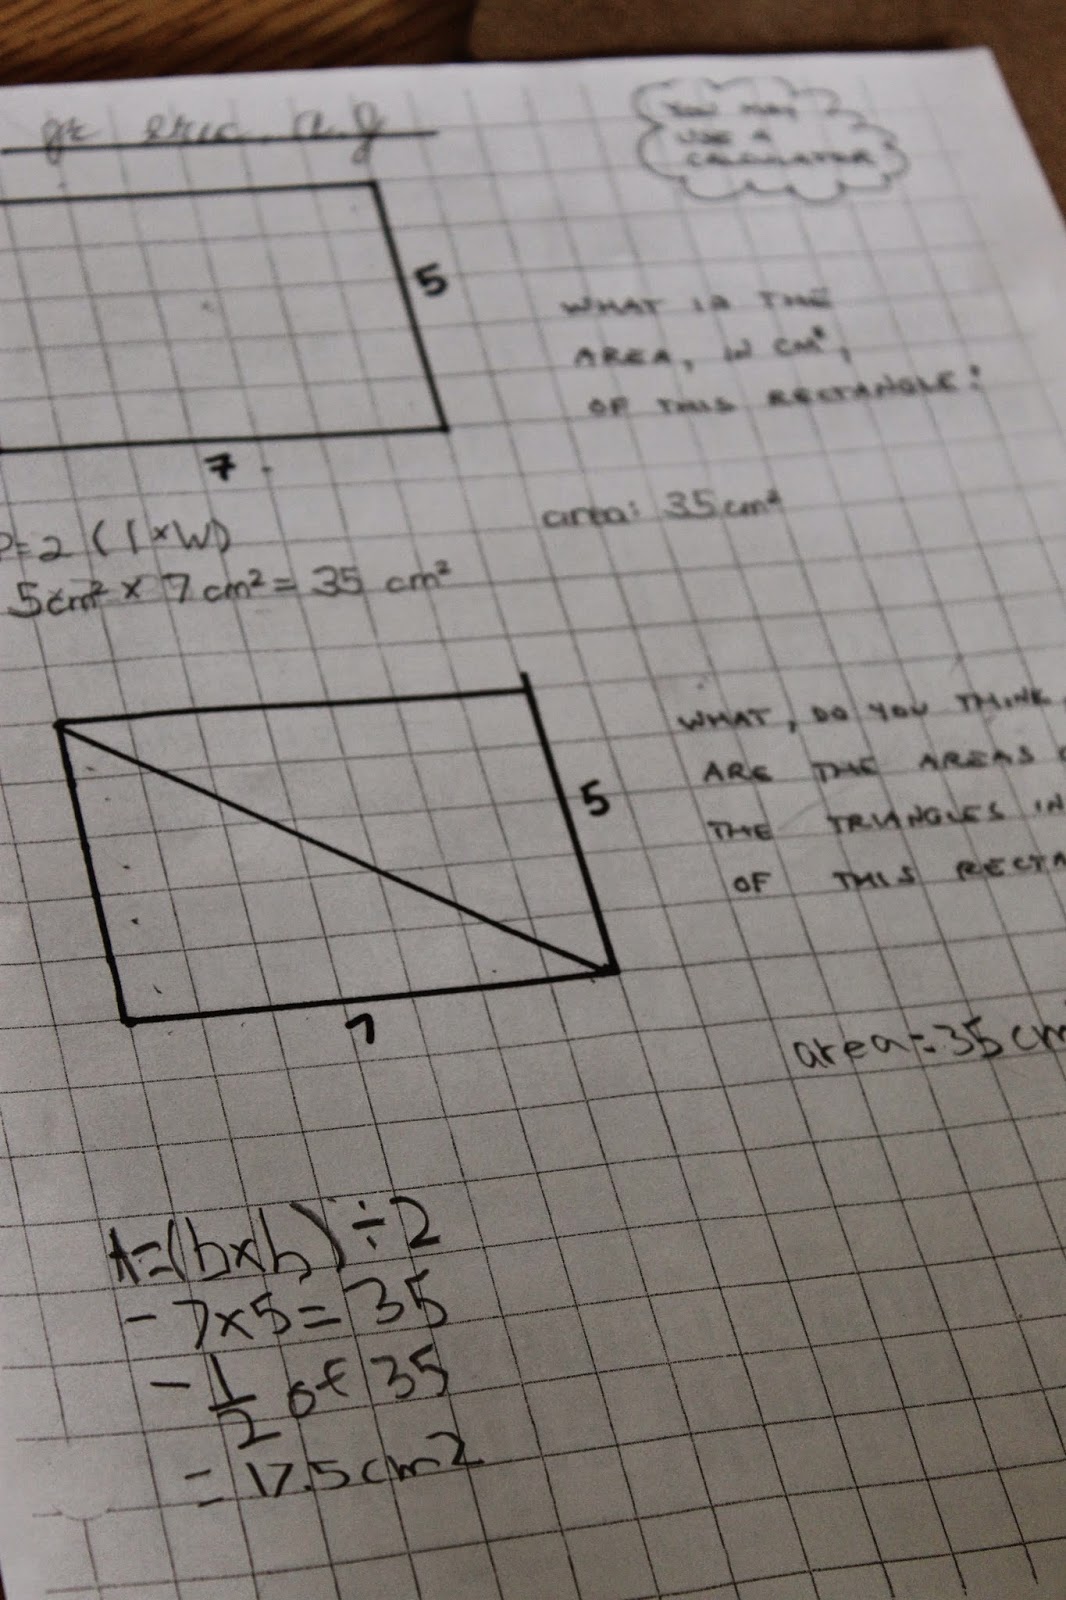 YOU MAY
USE A
CALCULATOR
5
WHAT IS THE
AREA, IN CM²,
OF THIS RECTANGLE?
7
P=2 (l×W)
area: 35cm²
5cm² × 7cm² = 35 cm²
WHAT, DO YOU THINK,
ARE THE AREAS
5
THE TRIANGLES IN
OF THIS RECTA
7
area=35cm
A=(b×h)÷2
- 7×5=35
- 1/2 of 35
= 17.5cm2